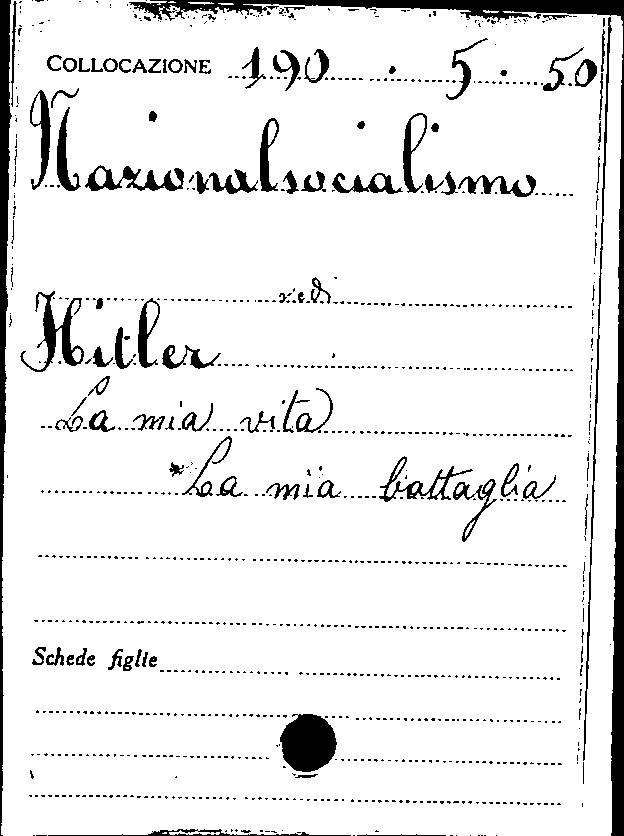 COLLOCAZIONE 190 . 5 . 50
Nazionalsocialismo
vedi
Hitler
La mia vita
*La mia battaglia
Schede figlie